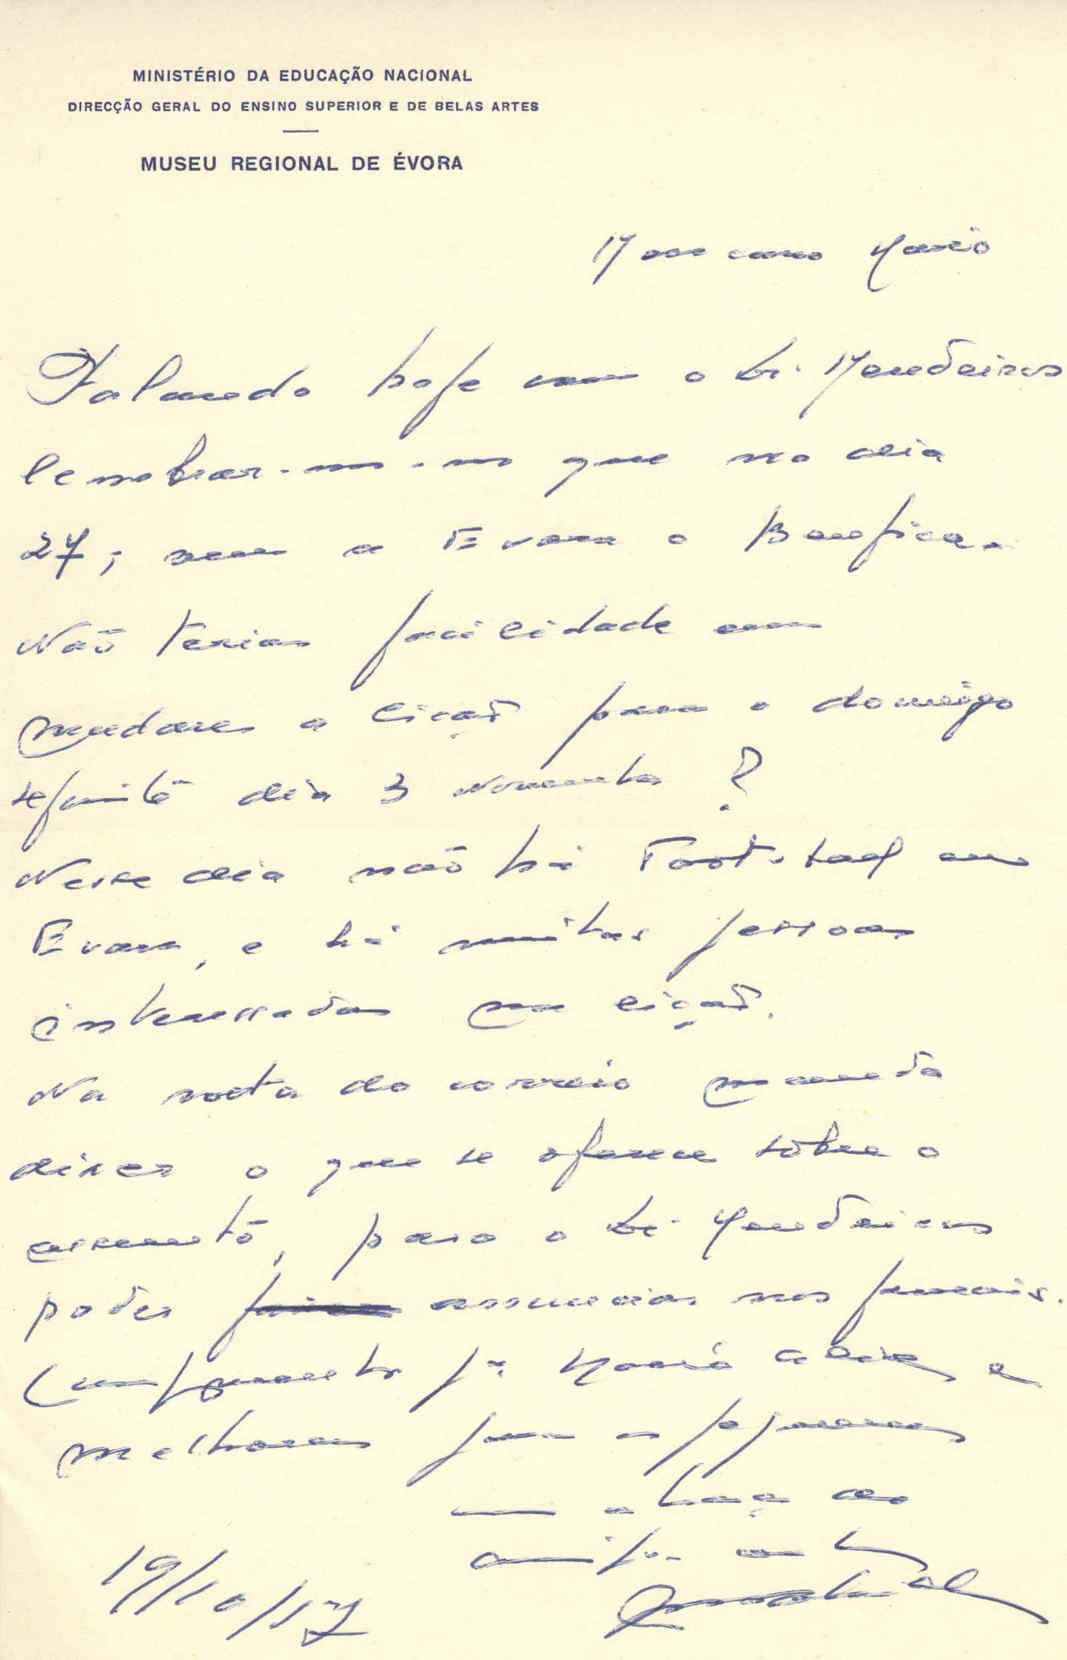 MINISTÉRIO DA EDUCAÇÃO NACIONAL
DIRECÇÃO GERAL DO ENSINO SUPERIOR E DE BELAS ARTES
MUSEU REGIONAL DE ÉVORA
Meu caro Mario
Falando hoje com o Dr.
que no dia
27, vem a Evora o Benfica.
Não terias facilidade em
mudares a lição para o domingo
seguinte dia 3 Novembro?
Nesse dia não há Foot-ball em
Evora, e há muitas pessoas
interessadas na lição.
Na volta do correio manda
dizer o que se oferece sôbre o
assunto, para o Dr.
poder anunciar nos jornais.
Cumprimentos pª Maria e
melhoras para os pequenos
um abraço do
amigo
19/10/57